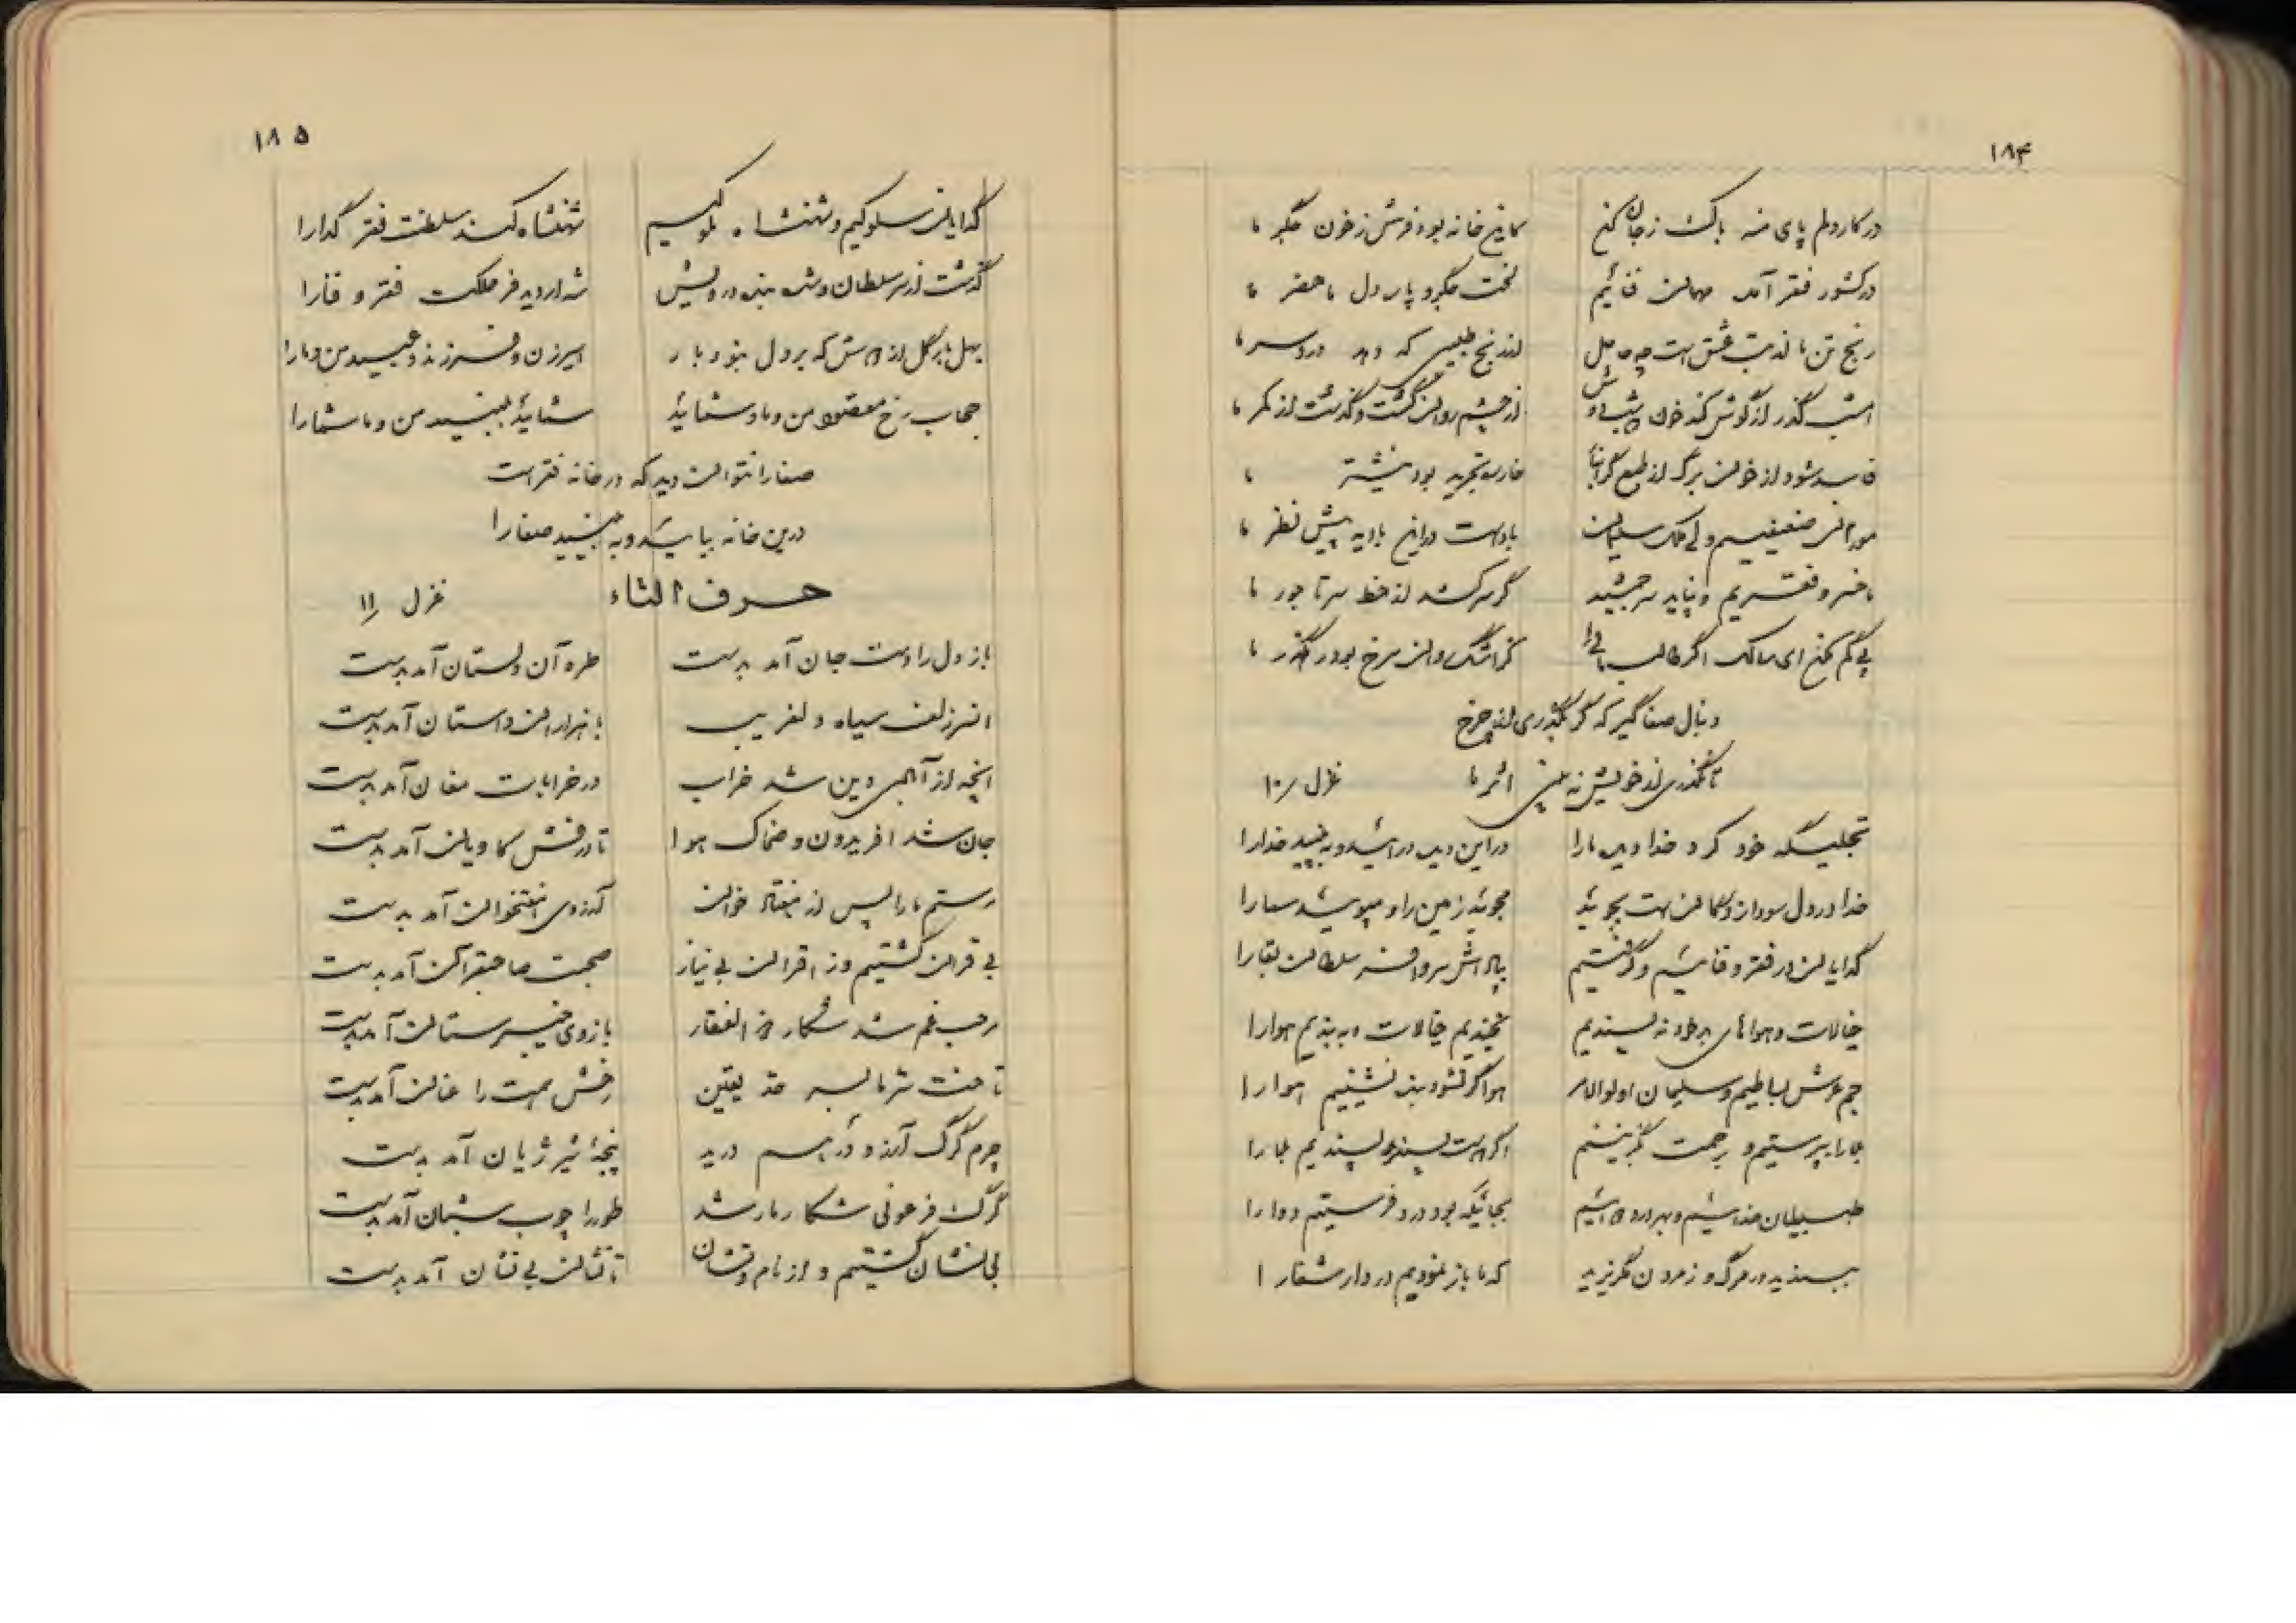 ۱۸۴
در کار دلم پای منه باک ز جان کن کاین خانه بود فرش ز خون جگر ما
در کشور فقر آمده مهمان فنائیم لخت جگر و پاره دل ما حضر ما
رنج تن ما لذت عشق است چه حاصل از رنج طبیبی که دهد دردسر ما
امشب گذر از گوش کند خون از چشم روان گشت و گذشت از کمر ما
فاسد شود از خون برگ از طبع گرانبا خار سر تجرید بود نیشتر ما
موران ضعیفیم ولی ملک سلیمان باد است در این بادیه پیش نظر ما
ما خسرو فقریم و نپاید سر جمشید گر سر کشد از خط سر تاجور ما
پی گم نکن ای سالک اگر طالب مائی کز اشک روان سرخ بود رهگذر ما
دنبال صفا گیر که گر بگذری از چرخ
تا نگذری از خویش نه بینی اثر ما غزل ۱۰
تجلیگه خود کرد خدا دیده ما را در این دیده درآئید و ببینید خدا را
خدا در دل سودازدگان است بجوئید مجوئید زمین را و مپوئید سما را
گدایان در فقر و فنائیم و گرفتیم پاداش سر و افسر سلطان بقا را
خیالات و هواهای بر خود نه پسندیم بچیندیم خیالات و ببندیم هوا را
جم عرش بساطیم و سلیمان اولوالامر هوا گر نشود بنده نشینیم هوا را
بلا را بپرستیم و رحمت بگزینیم اگر دوست پسندید پسندیم بلا را
طبیبان خدائیم و بهر درد دوائیم بجائیکه بود درد فرستیم دوا را
ببندید در مرگ و ز مردن مگریزید که ما باز نمودیم در دار شفا را
۱۸۵
گدایان سلوکیم و شهنشاه ملوکیم شهنشاه کند سلطنت فقر گدا را
گذشت از سر سلطان و شه بنده درویش شه ار دید فر مملکت فقر و فنا را
بهل بار گل از دوش که بر دل ننهد بار اسیر زن و فرزند و عبید من و ما را
حجاب رخ مقصود من و ما و شمائید شمائید ببینید من و ما شما را
صفا را نتوان دید که در خانه فقر است
درین خانه بیائید و ببینید صفا را
حرف التاء غزل ۱۱
باز دل را دست جان آمد بدست طره آن دلستان آمد بدست
افسر زلف سیاه دلفریب با هزاران داستان آمد بدست
آنچه از آبادی دین شد خراب در خرابات مغان آمد بدست
جان شد افریدون و ضحاک هوا تا درفش کاویان آمد بدست
رستم ما را پس از هفتاد خوان آرزوی هفتخوان آمد بدست
بی قران گشتیم وز اقران بی نیاز صحبت صاحبقران آمد بدست
مرحب غم شد شکار ذوالفقار بازوی خیبرستان آمد بدست
تاخت تا سرحد یقین رخش همت را عنان آمد بدست
چرم گرگ آرزو در هم درید پنجهٔ شیر ژیان آمد بدست
گرگ فرعونی شکار مار شد طور را چوب شبان آمد بدست
بی نشان گشتیم و از نام و نشان تا نشان بی نشان آمد بدست